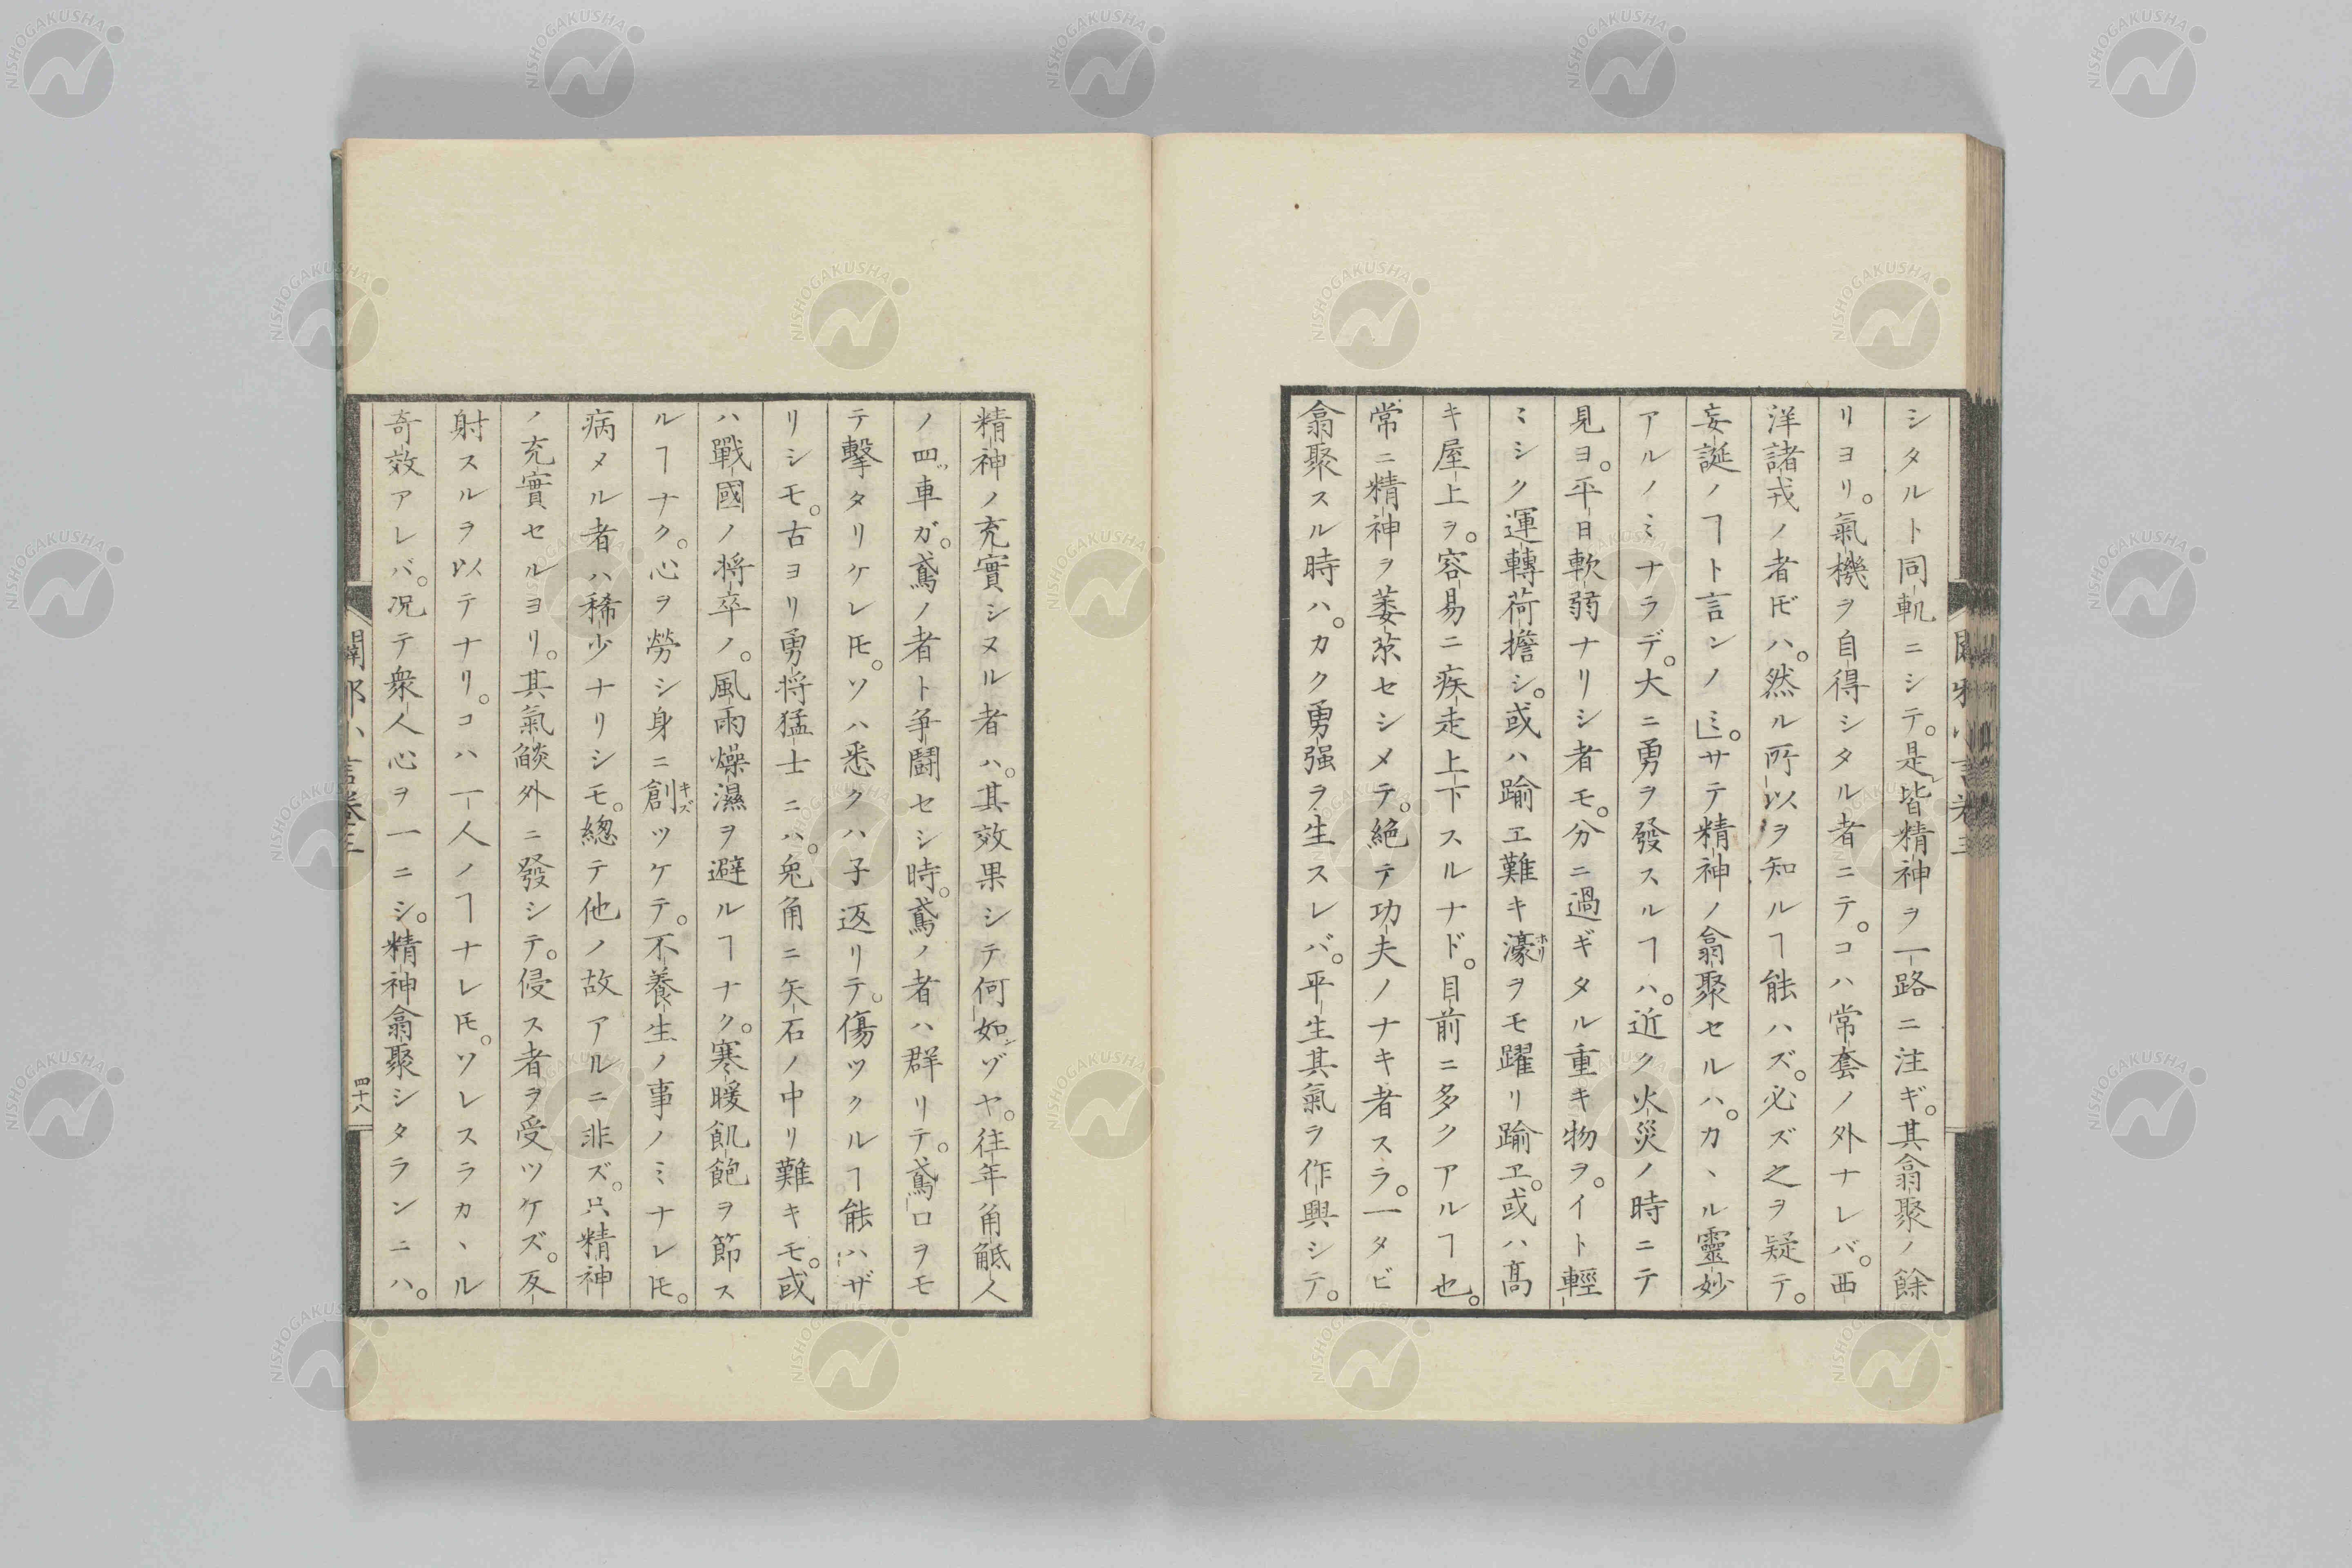 シタルト同軌ニシテ。是皆精神ヲ一路ニ注ギ。其翕聚ノ餘
リヨリ。氣機ヲ自得シタル者ニテ。コハ常套ノ外ナレバ。西
洋諸戎ノ者𪜈ハ。然ル所以ヲ知ルヿ能ハズ。必ズ之ヲ疑テ。
妄誕ノヿト言ンノミ。サテ精神ノ翕聚セルハ。カヽル靈妙
アルノミナラデ。大ニ勇ヲ發スルヿハ。近ク火災ノ時ニテ
見ヨ。平日軟弱ナリシ者モ。分ニ過ギタル重キ物ヲ。イト輕
ミシク運轉荷擔シ。或ハ踰エ難キ濠ヲモ躍リ踰エ。或ハ高
キ屋上ヲ。容易ニ疾走上下スルナド。目前ニ多クアルヿ也。
常ニ精神ヲ萎苶セシメテ。絶テ功夫ノナキ者スラ。一タビ
翕聚スル時ハ。カク勇强ヲ生スレバ。平生其氣ヲ作興シテ。
精神ノ充實シヌル者ハ。其效果シテ何如ゾヤ。往年角觝人
ノ四ッ車ガ。鳶ノ者ト爭鬪セシ時。鳶ノ者ハ群リテ。鳶口ヲモ
テ擊タリケレ𪜈。ソハ悉クハ子返リテ。傷ツクルヿ能ハザ
リシモ。古ヨリ勇將猛士ニハ。兎角ニ矢石ノ中リ難キモ。或
ハ戰國ノ將卒ノ。風雨燥濕ヲ避ルヿナク。寒暖飢飽ヲ節ス
ルヿナク。心ヲ勞シ身ニ創ツケテ。不養生ノ事ノミナレ𪜈。
病メル者ハ稀少ナリシモ。總テ他ノ故アルニ非ズ。只精神
ノ充實セルヨリ。其氣燄外ニ發シテ。侵ス者ヲ受ツケズ。反
射スルヲ以テナリ。コハ一人ノヿナレ𪜈。ソレスラカヽル
奇效アレバ。况テ衆人心ヲ一ニシ。精神翕聚シタランニハ。
闢邪小言卷三
四十八
NISHOGAKUSHA